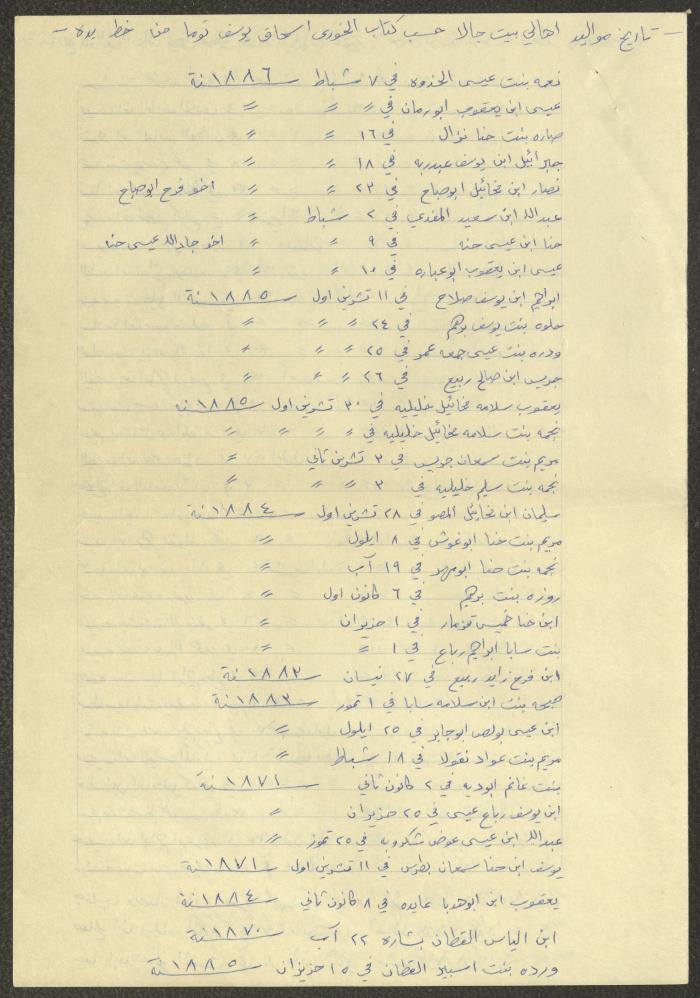 - تاريخ مواليد اهالي بيت جالا حسب كتاب الخوري اسحاق يوسف توما من خط يده -
نعمه بنت عيسى الخذوه في ٧ شباط سنة ١٨٨٦
عيسى ابن يعقوب ابورمان في " " "
صاره بنت حنا نزال في ١٦ " "
جبرائيل ابن يوسف عبدربه في ١٨ " "
نصار ابن مخائيل ابوصباح في ٢٣ " " اخو فرح ابوصباح
عبدالله ابن سعيد المغدي في ٢ شباط "
حنا ابن عيسى حنه في ٩ " " اخو جادالله عيسى حنه
عيسى ابن يعقوب ابوعباره في ١٠ " "
ابراهيم ابن يوسف صلاح في ١١ تشرين اول سنة ١٨٨٥
حلوه بنت يوسف برهم في ٢٤ " " "
ورده بنت عيسى جمعه عمر في ٢٥ " " "
جريس ابن صالح ربيع في ٢٦ " " "
يعقوب سلامه مخائيل خليليه في ٣٠ تشرين اول سنة ١٨٨٥
نجمه بنت سلامه مخائيل خليليه في " " " "
مريم بنت سمعان جريس في ٣ تشرين ثاني "
نجمه بنت سليم خليليه في ٣ " " "
سليمان ابن مخائيل المصو في ٢٨ تشرين اول سنة ١٨٨٤
مريم بنت حنا ابوغوش في ٨ ايلول "
نجمه بنت حنا ابومهر في ١٩ آب "
روزه بنت برهم في ٦ كانون اول "
ابن حنا خميس قزمار في ١ حزيران "
بنت سابا ابراهيم رباع في ١ " "
ابن فرح زايد ربيع في ٢٧ نيسان سنة ١٨٨٣
صبحه بنت ابن سلامه سابا في ١ تموز سنة ١٨٨٣
ابن عيسى بولص ابوجابر في ٢٥ ايلول "
مريم بنت عواد نقولا في ١٨ شباط "
بنت غانم ابوديه في ٢ كانون ثاني سنة ١٨٧١
ابن يوسف رباع عيسى في ٢٥ حزيران "
عبدالله ابن عيسى عوض شكروبه في ٢٥ تموز "
يوسف ابن حنا سمعان بطرس في ١١ تشرين اول سنة ١٨٧١
يعقوب ابن ابوهدبا عايده في ٨ كانون ثاني سنة ١٨٨٤
ابن الياس القطان بشاره ٢٢ آب سنة ١٨٧٠
ورده بنت اسبير القطان في ١٥ حزيران سنة ١٨٨٥